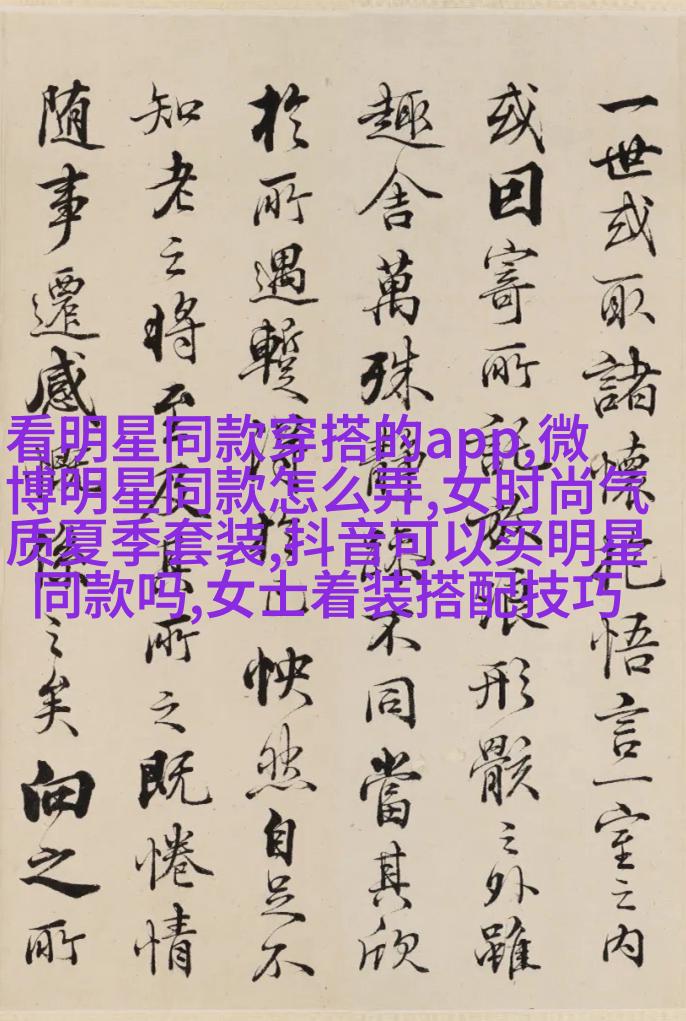 一世或取諸懷抱悟言一室之内
或因寄所託放浪形骸之外雖
趣舍萬殊靜躁不同當其欣
於所遇蹔得於己怏然自足不
知老之將至及其所之既惓情
随事遷感慨係之矣向之所
看明星同款穿搭的app,微
博明星同款怎么弄,女时尚气
质夏季套装,抖音可以买明星
同款吗,女士着装搭配技巧